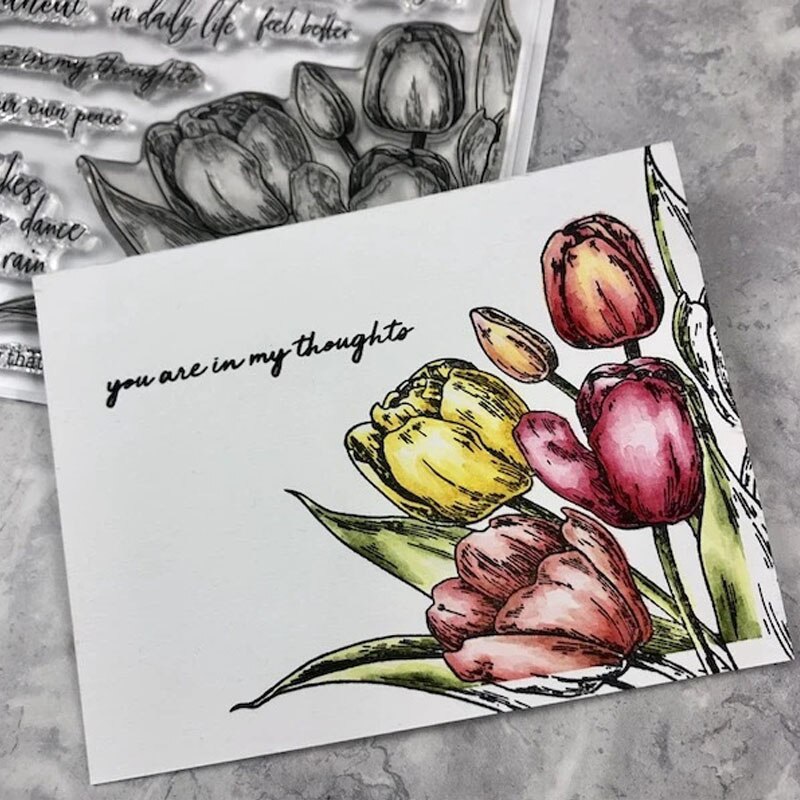 in daily life
feel better
in my thoughts
own peace
dance
rain
that
you are in my thoughts